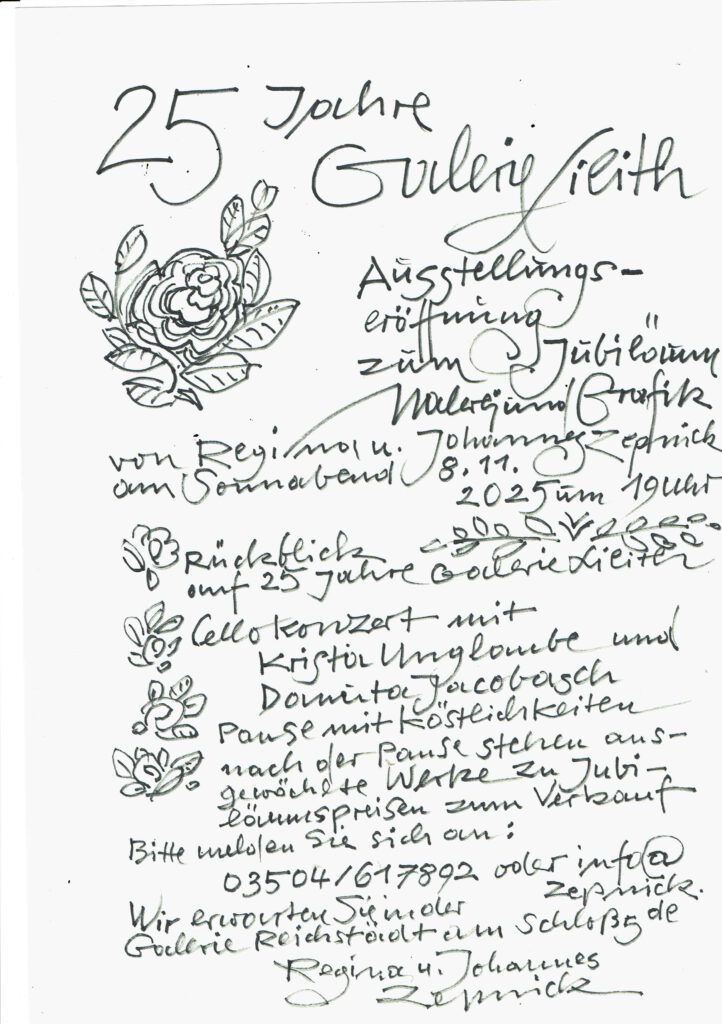 25 Jahre
Galerie Lilith
Ausstellungs-
eröffnung
zum Jubiläum
Malerei und Grafik
von Regina u. Johannes Zepnick
am Sonnabend 8.11.
2025 um 19 Uhr
Rückblick
auf 25 Jahre Galerie Lilith
Cellokonzert mit
Krista Unglaube und
Danuta Jacobasch
Pause mit Köstlichkeiten
nach der Pause stehen aus-
gewählte Werke zu Jubi-
läumspreisen zum Verkauf
Bitte melden Sie sich an:
03504/617892 oder info@
zepnick.
de
Wir erwarten Sie in der
Galerie Reichstädt am Schloß 5
Regina u. Johannes
Zepnick